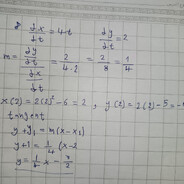 2 dx/dt = 4t    dy/dt = 2
m = (dy/dt)/(dx/dt) = 2/(4·2) = 2/8 = 1/4
x(2) = 2(2)² - 6 = 2 , y(2) = 2(2) - 5 = -1
tangent
y + y₁ = m(x - x₁)
y + 1 = 1/4 (x - 2
y = 1/4 x -